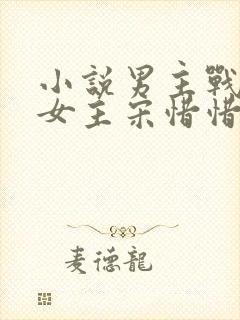 小說男主戰
女主宋惜惜
麦德龍